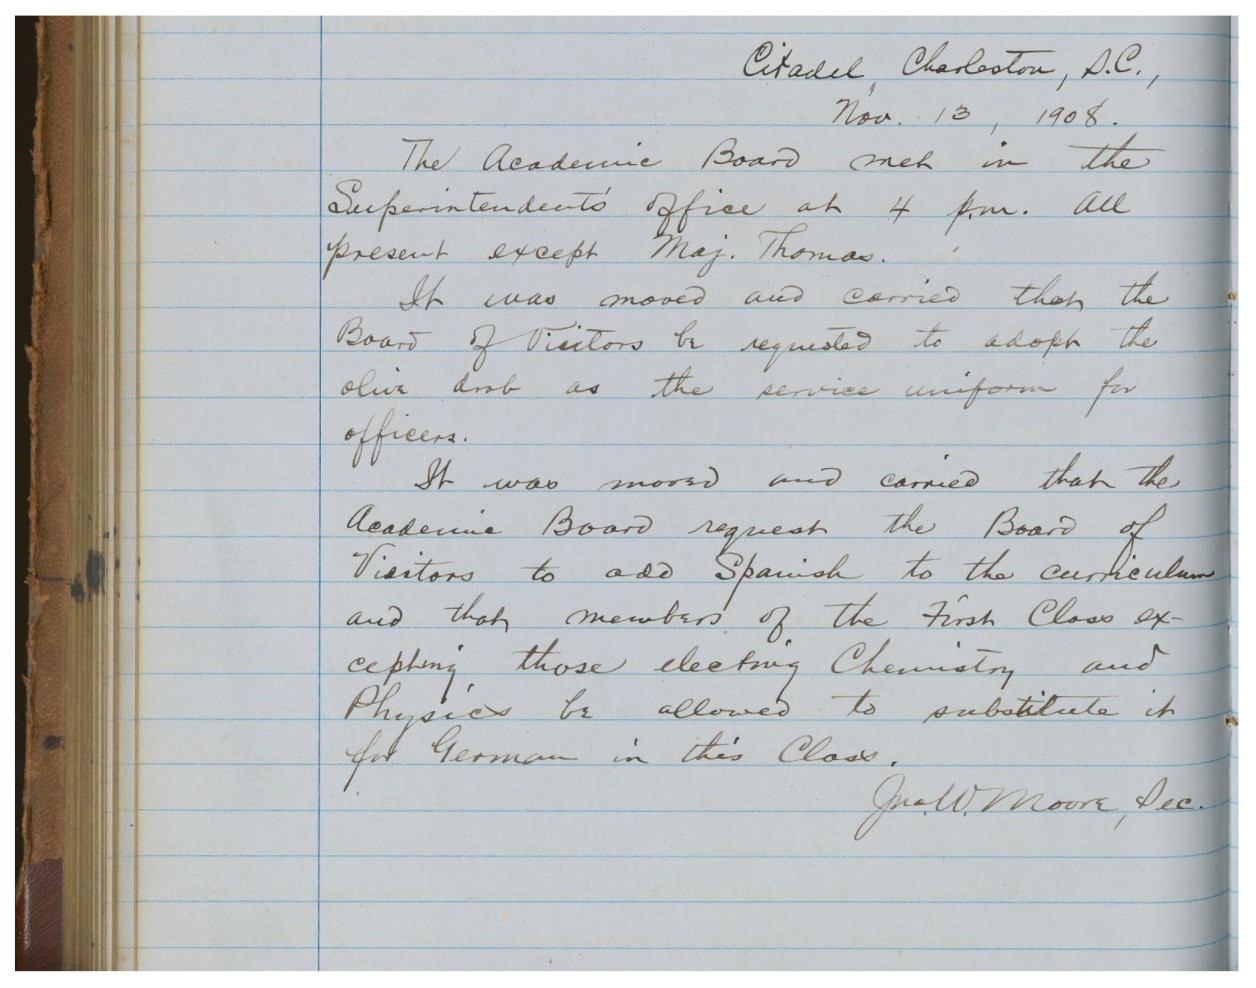 Citadel, Charleston, S.C.,
Nov. 13, 1908.
The Academic Board met in the
Superintendent's office at 4 p.m. All
present except Maj. Thomas.
It was moved and carried that the
Board of Visitors be requested to adopt the
olive drab as the service uniform for
officers.
It was moved and carried that the
Academic Board request the Board of
Visitors to add Spanish to the curriculum
and that members of the First Class ex-
cepting those electing Chemistry and
Physics be allowed to substitute it
for German in this Class.
Jno. W. Moore, Sec.